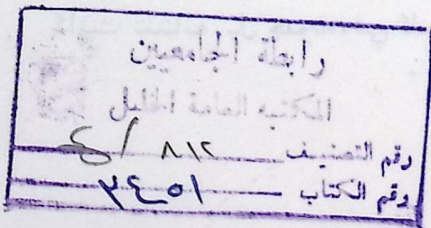 رابطة الجامعيين
المكتبة العامة الخليل
رقم التصنيف ٨١٢ / ع
رقم الكتاب ٢٤٥١